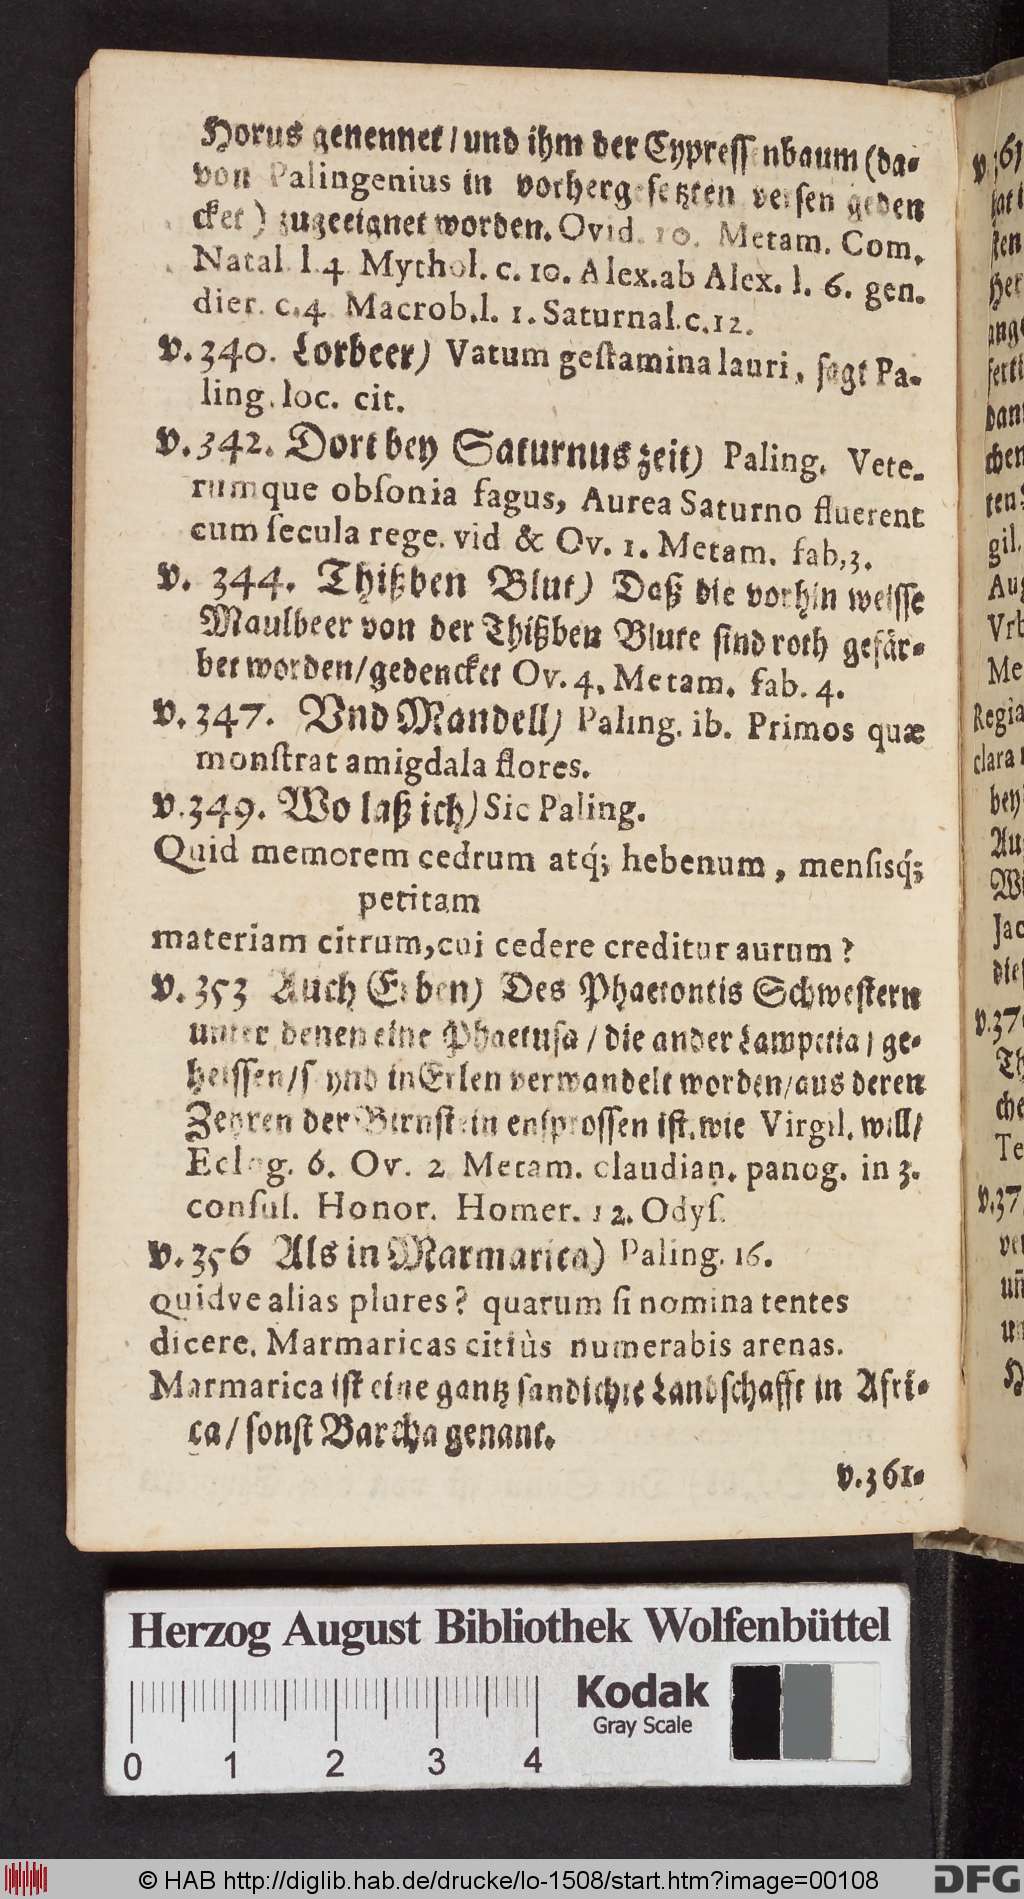 Horus genennet / und ihm der Cypressenbaum (da-
von Palingenius in vorhergesetzten versen geden
cket) zugeeignet worden. Ovid. 10. Metam. Com.
Natal. l. 4 Mythol. c. 10. Alex. ab Alex. l. 6. gen.
dier. c. 4 Macrob. l. 1. Saturnal. c. 12.
v. 340. Lorbeer) Vatum geſtamina lauri, sagt Pa-
ling. loc. cit.
v. 342. Dort bey Saturnus zeit) Paling. Vete-
rumque obſonia fagus, Aurea Saturno fluerent
cum ſecula rege. vid & Ov. 1. Metam. fab. 3.
v. 344. Thißben Blut) Daß die vorhin weisse
Maulbeer von der Thißben Blute sind roth gefär-
bet worden / gedencket Ov. 4. Metam. fab. 4.
v. 347. Vnd Mandell) Paling. ib. Primos quæ
monſtrat amigdala flores.
v. 349. Wo laß ich) Sic Paling.
Quid memorem cedrum atq́; hebenum, menſisq́;
petitam
materiam citrum, cui cedere creditur aurum?
v. 353 Auch Erben) Des Phaetontis Schwestern
unter denen eine Phaetusa / die ander Lampetia / ge-
heissen / seynd in Erlen verwandelt worden / aus deren
Zehren der Birnstein ensprossen ist. wie Virgil. will /
Eclog. 6. Ov. 2 Metam. claudian. panog. in 3.
conſul. Honor. Homer. 12. Odyſ.
v. 356 Als in Marmarica) Paling. 16.
Quidve alias plures? quarum ſi nomina tentes
dicere. Marmaricas citiùs numerabis arenas.
Marmarica ist eine gantz sandichte Landschafft in Afri-
ca / sonst Barcha genant.
v. 361-
Herzog August Bibliothek Wolfenbüttel
Kodak
Gray Scale
0 1 2 3 4
© HAB http://diglib.hab.de/drucke/lo-1508/start.htm?image=00108
DFG